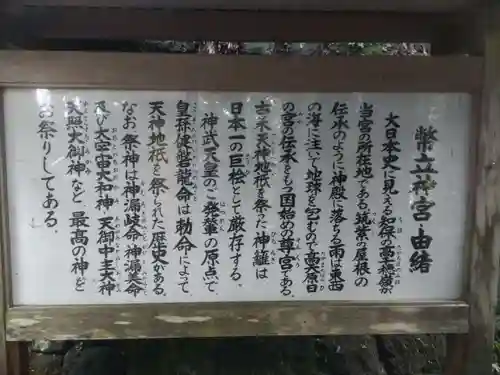 幣立神宮由緒
大日本史に見える知保の高千穂嶺が
当宮の所在地である。筑紫の屋根の
伝承のように神殿に落ちる雨は東西
の海に注いで地球を包むので高天原日
の宮の伝承をもつ国始めの尊宮である。
古来天神地祇を祭った神籬は
日本一の巨桧として厳存する。
神武天皇のご発輦の原点で、
皇孫健磐龍命は勅命によって、
天神地祇を祭られた歴史がある。
なお祭神は神漏岐命・神漏美命
及び大宇宙大和神・天御中主大神
天照大御神など最高の神を
お祭りしてある。